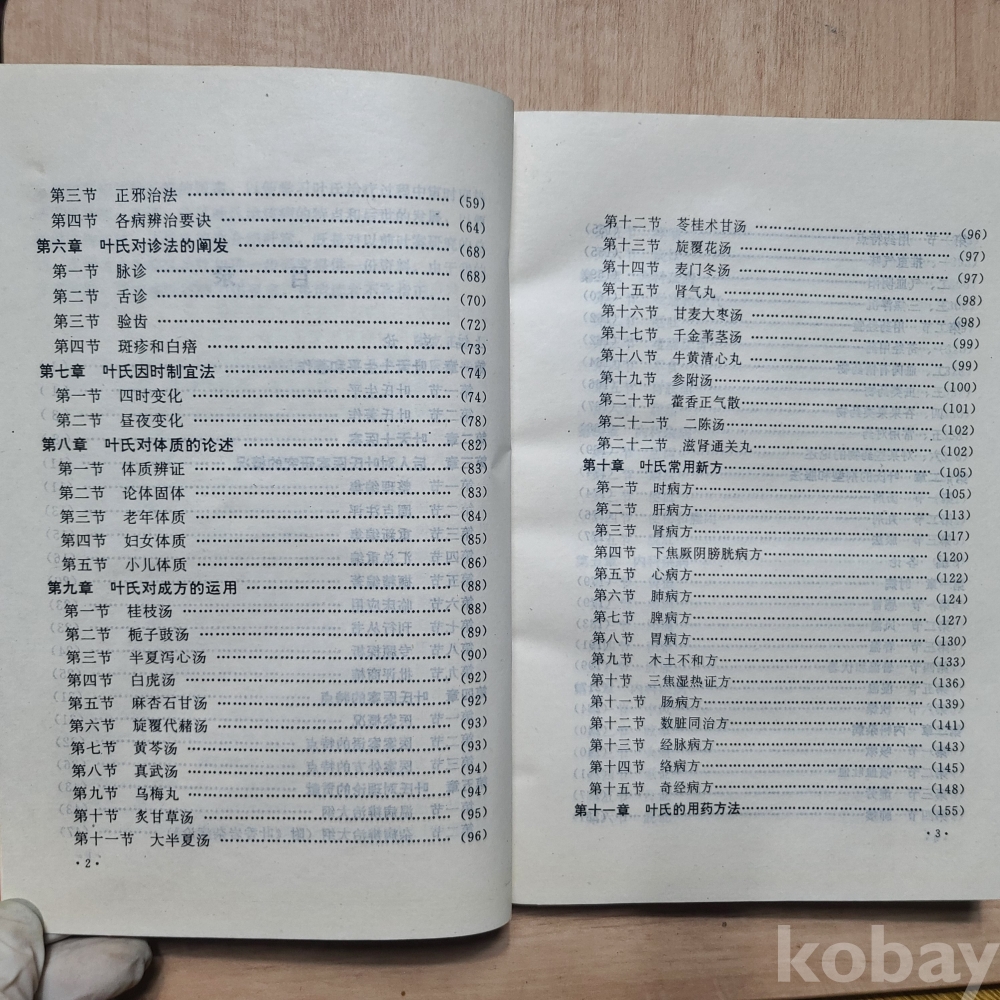 第三节 正邪治法 (59)
第四节 各病辨治要诀 (64)
第六章 叶氏对诊法的阐发 (68)
第一节 脉诊 (68)
第二节 舌诊 (70)
第三节 验齿 (72)
第四节 斑疹和白㾦 (73)
第七章 叶氏因时制宜法 (74)
第一节 四时变化 (74)
第二节 昼夜变化 (78)
第八章 叶氏对体质的论述 (82)
第一节 体质辨证 (83)
第二节 论体固体 (83)
第三节 老年体质 (84)
第四节 妇女体质 (85)
第五节 小儿体质 (86)
第九章 叶氏对成方的运用 (88)
第一节 桂枝汤 (88)
第二节 栀子豉汤 (89)
第三节 半夏泻心汤 (90)
第四节 白虎汤 (92)
第五节 麻杏石甘汤 (92)
第六节 旋覆代赭汤 (93)
第七节 黄芩汤 (93)
第八节 真武汤 (94)
第九节 乌梅丸 (94)
第十节 炙甘草汤 (95)
第十一节 大半夏汤 (96)
·2·
第十二节 苓桂术甘汤 (96)
第十三节 旋覆花汤 (97)
第十四节 麦门冬汤 (97)
第十五节 肾气丸 (98)
第十六节 甘麦大枣汤 (98)
第十七节 千金苇茎汤 (99)
第十八节 牛黄清心丸 (99)
第十九节 参附汤 (100)
第二十节 藿香正气散 (101)
第二十一节 二陈汤 (102)
第二十二节 滋肾通关丸 (102)
第十章 叶氏常用新方 (105)
第一节 时病方 (105)
第二节 肝病方 (113)
第三节 肾病方 (117)
第四节 下焦厥阴膀胱病方 (120)
第五节 心病方 (122)
第六节 肺病方 (124)
第七节 脾病方 (127)
第八节 胃病方 (130)
第九节 木土不和方 (133)
第十节 三焦湿热证方 (136)
第十一节 肠病方 (139)
第十二节 数脏同治方 (141)
第十三节 经脉病方 (143)
第十四节 络病方 (145)
第十五节 奇经病方 (148)
第十一章 叶氏的用药方法 (155)
·3·
kobay